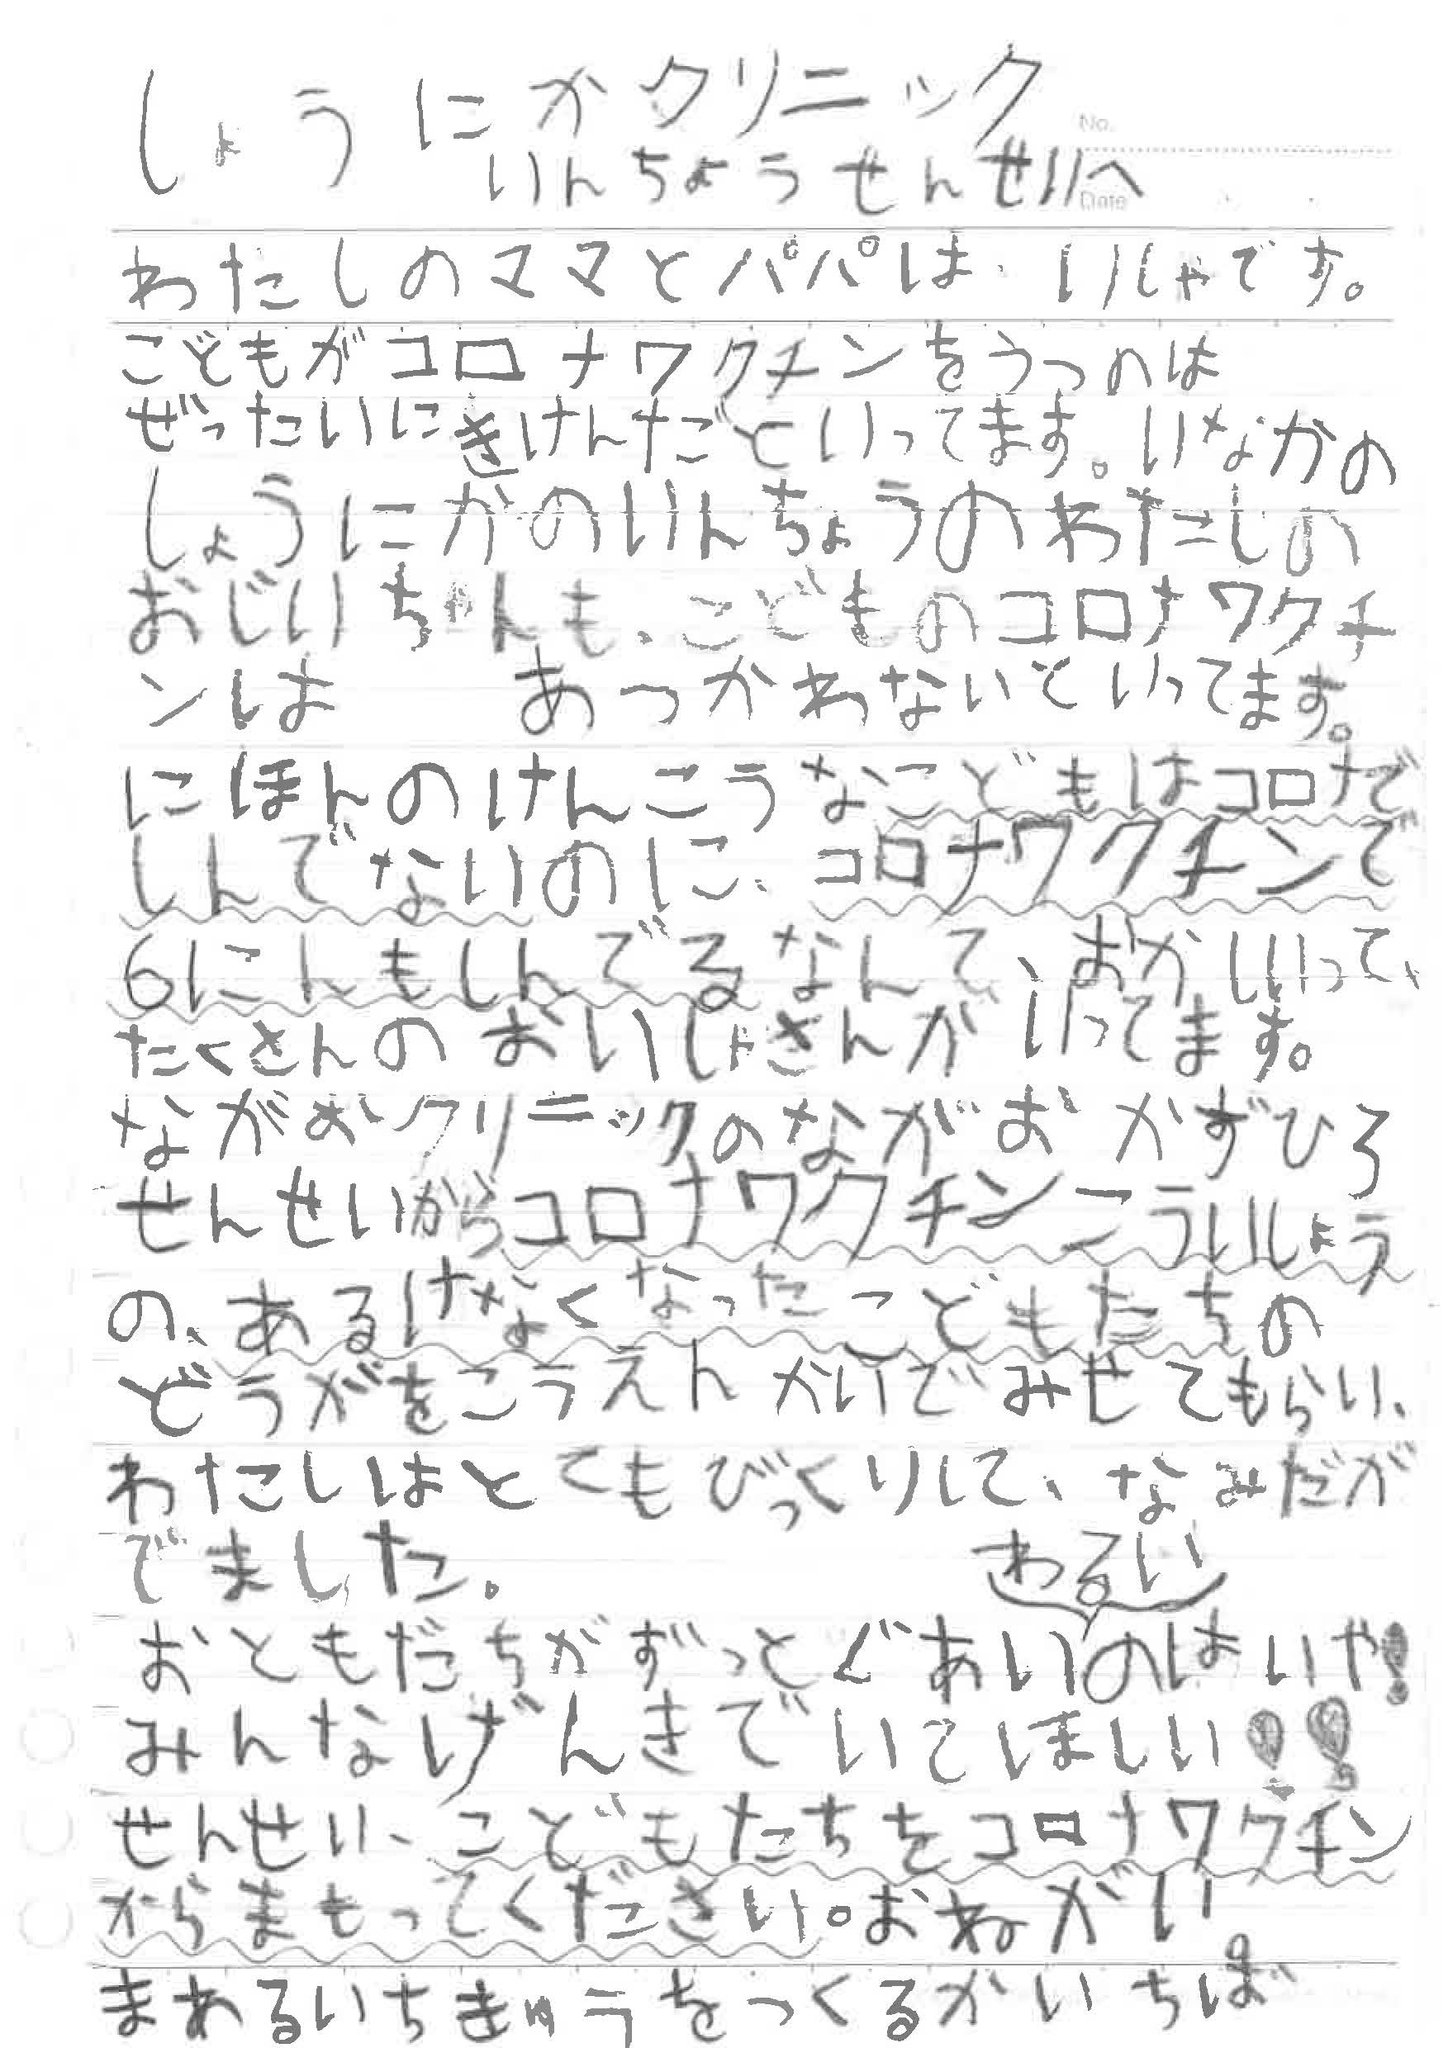 しょうにかクリニック
No.
いんちょうせんせいへ
Date
わたしのママとパパは、いしゃです。
こどもがコロナワクチンをうつのは
ぜったいにきけんだといってます。いなかの
しょうにかのいんちょうのわたしの
おじいちゃんも、こどものコロナワクチ
ンは あつかわないといってます。
にほんのけんこうなこどもはコロナで
しんでないのに、コロナワクチンで
6にんもしんでるなんて、おかしいって、
たくさんのおいしゃさんがいってます。
ながおクリニックのながおかずひろ
せんせいからコロナワクチンこういしょう
の、あるけなくなったこどもたちの
どうがをこうえんかいでみせてもらい、
わたしはとてもびっくりして、なみだが
でました。
わるい
おともだちがずっとぐあいのはいや!
みんなげんきでいてほしい!!
せんせい、こどもたちをコロナワクチン
からまもってください。おねがい。
まあるいちきゅうをつくるかいちば